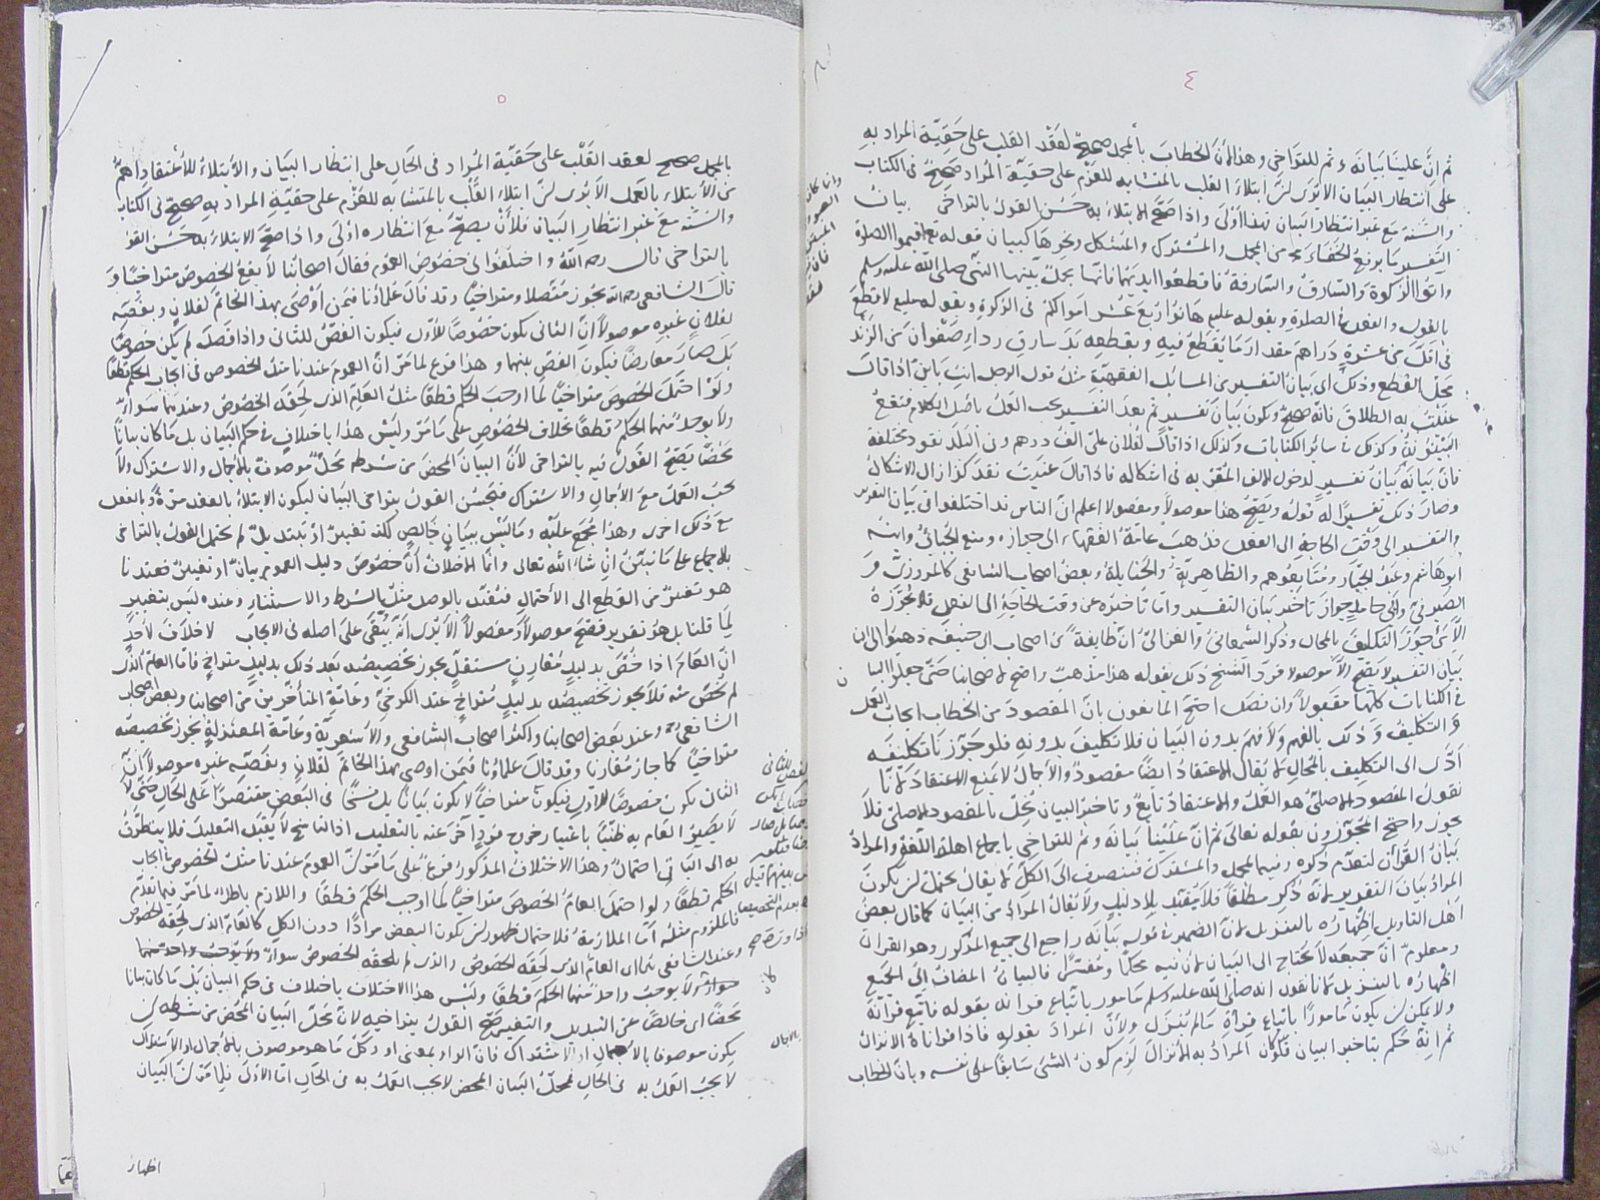 ٤
ثم انّ علينا بيانه وثم للتراخى وهذا لانّ الخطاب بالمجمل صحيح لعقد القلب على حقيّة المراد به
على انتظار البيان الا ترى انّ ابتلاء القلب بالمتشابه للعزم على حقيّة المراد صحيح فى الكتاب
والسنّة مع غير انتظار البيان فهذا اولى واذا صحّ الابتلاء به حسن القول بالتراخى بيان
التفسير ما يرفع الخفاء من المجمل والمشترك والمشكل ونحوها كبيان قوله تع اقيموا الصلوة
وآتوا الزكوة والسارق والسارقة فاقطعوا ايديهما فانها مجملة بيّنها النبى صلى الله عليه وسلم
بالقول والفعل فى الصلوة وبقوله عليه هاتوا ربع عشر اموالكم فى الزكوة وبقوله عليه لا قطع
فى اقلّ من عشرة دراهم مقدار ما يقطع فيه وبقطعه يد سارق رداء صفوان من الزند
محلّ القطع وذلك اى بيان التفسير من المسائل الفقهيّة مثل قول الرجل انت باين اذا قال
عنيت به الطلاق فانه صحيح ويكون بيان تفسير ثم بعد التفسير يجب العمل باصل الكلام فيقع
البينونة وكذلك فى سائر الكنايات وكذلك اذا قال لفلان علىّ الف درهم وفى البلد نقود مختلفة
فانّ بيانه بيان تفسير لدخول الالف المقرّ به فى اشكاله فاذا قال عنيت نقد كذا زال الاشكال
وصار ذلك تفسيرًا له قوله ويصحّ هذا موصولا ومفصولا اعلم انّ الناس قد اختلفوا فى بيان التقرير
والتفسير الى وقت الحاجة الى الفعل فذهب عامّة الفقهاء الى جوازه ومنع الجبائى وابنه
ابو هاشم وعبد الجبّار ومتابعوهم والظاهرية والحنابلة وبعض اصحاب الشافعى كالمروزى و
الصيرفى وابى حامد جواز تأخير بيان التفسير وامّا تأخيره عن وقت الحاجة الى الفعل فلا يجوّزه
الّا من جوّز التكليف بالمحال وذكر السمعانى والغزالى انّ طايفة من اصحاب ابى حنيفه ذهبوا الى ان
بيان التفسير لا يصحّ الّا موصولا فردّ الشيخ ذلك بقوله هذا مذهب واضح لاصحابنا حتى جعلوا البيا
ن
فى الكنايات كلها مقبولا وان فصل احتجّ المانعون بانّ المقصود من الخطاب ايجاب العمل
والتكليف وذلك بالفهم ولا فهم بدون البيان فلا تكليف بدونه فلو جوّزنا تكليفه
ادّى الى التكليف بالمحال لا يقال الاعتقاد ايضًا مقصود والاجمال لا يمنع الاعتقاد لانّا
نقول المقصود الاصلى هو العمل والاعتقاد تابع وتأخير البيان يخلّ بالمقصود الاصلى فلا
يجوز واحتجّ المجوّزون بقوله تعالى ثم انّ علينا بيانه وثم للتراخى باجماع اهل اللغة والمراد
بيان القرآن لتقدّم ذكره وفيه المجمل والمشترك فينصرف الى الكلّ لا يقال يحتمل ان يكون
المراد بيان التقرير لانه ذكر مطلقًا فلا يتقيّد بلا دليل ولا يقال المراد من البيان كما قال بعض
اهل التاويل اظهاره بالتنزيل لانّ الضمير فى قوله بيانه راجع الى جميع المذكور وهو القرآن
ومعلوم انّ جميعه لا يحتاج الى البيان لان فيه محكمًا ومفسّرًا فالبيان المضاف الى الجميع
اظهاره بالتنزيل لانا نقول انه صلى الله عليه وسلم مامور باتّباع قرآنه بقوله فاتّبع قرآنه
ولا يمكن ان يكون مامورًا باتباع قرآة ما لم ينزل ولانّ المراد بقوله فاذا قرأناه الانزال
ثم انه حكم بتاخير البيان فلو كان المراد به الانزال لزم كون الشئ سابقًا على نفسه وبانّ الخطاب
٥
بالمجمل صحيح لعقد القلب على حقيّة المراد فى الحال على انتظار البيان والابتلاء للاعتقاد اهمّ
من الابتلاء بالعمل الا ترى انّ ابتلاء القلب بالمتشابه للعزم على حقيّة المراد به صحيح فى الكتاب
والسنّة مع غير انتظار البيان فلأن يصحّ مع انتظاره اولى واذا صحّ الابتلاء به حسن القول
بالتراخى قال رحمه الله واختلفوا فى خصوص العموم فقال اصحابنا لا يقع الخصوص متراخيًا و
قال الشافعى رحمه الله يجوز متصلا ومتراخيًا وقد قال علماؤنا فيمن اوصى بهذا الخاتم لفلان وبفصّه
لفلان غيره موصولا انّ الثانى يكون خصوصًا للاول فيكون الفصّ للثانى واذا فصل لم يكن خصوصًا
بل صار معارضًا فيكون الفصّ بينهما وهذا فرع لما مرّ انّ العموم عندنا مثل الخصوص فى ايجاب الحكم قطعًا
ولو احتمل الخصوص متراخيًا لما اوجب الحكم قطعًا مثل العام الذى لحقه الخصوص وعندهما سواء
ولا يوجب منهما الحكم قطعًا بخلاف الخصوص على ما مرّ وليس هذا باختلاف فى حكم البيان بل ما كان بيانًا
محضًا يصحّ القول فيه بالتراخى لانّ البيان المحض من شرطه محلّ موصوف بالاجمال والاشتراك ولا
يجب العمل مع الاجمال والاشتراك فيحسن القول بتراخى البيان ليكون الابتلاء بالعقد مرّة وبالفعل
مع ذلك اخرى وهذا مجمع عليه وما ليس ببيان خالص لكنه تغيير او تبديل لم يحتمل القول بالتراخى
بلا جماع على ما نبيّن ان شاء الله تعالى وانما الاختلاف انّ خصوص دليل العموم بيان او تغيير فعندنا
هو تغيير من القطع الى الاحتمال فتقيّد بالوصل مثل الشرط والاستثناء وعنده ليس بتغيير
لما قلنا بل هو تقرير فصحّ موصولا ومفصولا الا ترى انه يبقى على اصله فى الايجاب لا خلاف لاحد
انّ العام اذا خصّ بدليل مقارن مستقلّ يجوز تخصيصه بعد ذلك بدليل متراخ فامّا العام الذى
لم يخصّ منه فلا يجوز تخصيصه بدليل متراخ عند الكرخى وعامّة المتأخرين من اصحابنا وبعض اصحاب
الشافعى وعند بعض اصحابنا واكثر اصحاب الشافعى والاشعريّة وعامّة المعتزلة يجوز تخصيصه
متراخيًا كما جاز مقارنا وقد قال علماؤنا فيمن اوصى بهذا الخاتم لفلان وبفصّه لغيره موصولا انّ
الثانى يكون خصوصًا للاول فيكون متراخيًا لا يكون بيانا بل نسخًا فى البعض مقتصرًا على الحال حتى لا
لا يصير العام به ظنّيًّا باعتبار خروج فرد آخر عنه بالتعليل اذ الناسخ لا يقبل التعليل فلا يتطرّق
به الى الباقى احتمال وهذا الاختلاف المذكور فرع على ما مرّ انّ العموم عندنا مثل الخصوص فى ايجاب
الحكم قطعًا ولو احتمل العام الخصوص متراخيًا لما اوجب الحكم قطعًا واللازم باطل لما مرّ فيما تقدّم
فالملزوم مثله امّا الملازمة فلاحتمال ظهور ان يكون البعض مرادًا دون الكل كالعام الذى لحقه الخصوص
وعند الشافعى اى العام الذى لحقه الخصوص والذى لم يلحقه الخصوص سواء ولا يوجب واحد منهما
سواء لا يوجب واحد منهما الحكم قطعًا وليس هذا الاختلاف باختلاف فى حكم البيان بل ما كان بيانا
محضًا اى خالصًا عن التبديل والتغيير صحّ القول بتراخيه لانّ محلّ البيان المحض من شرطه ان
يكون موصوفا بالاجمال او الاشتراك فانّ الواو بمعنى او وكلّ ما هو موصوف بالاجمال او الاشتراك
لا يجب العمل به فى الحال فمحلّ البيان المحض لا يجب العمل به فى الحال امّا الاول فلما مرّ انّ البيان
بالاجمال
اظهار